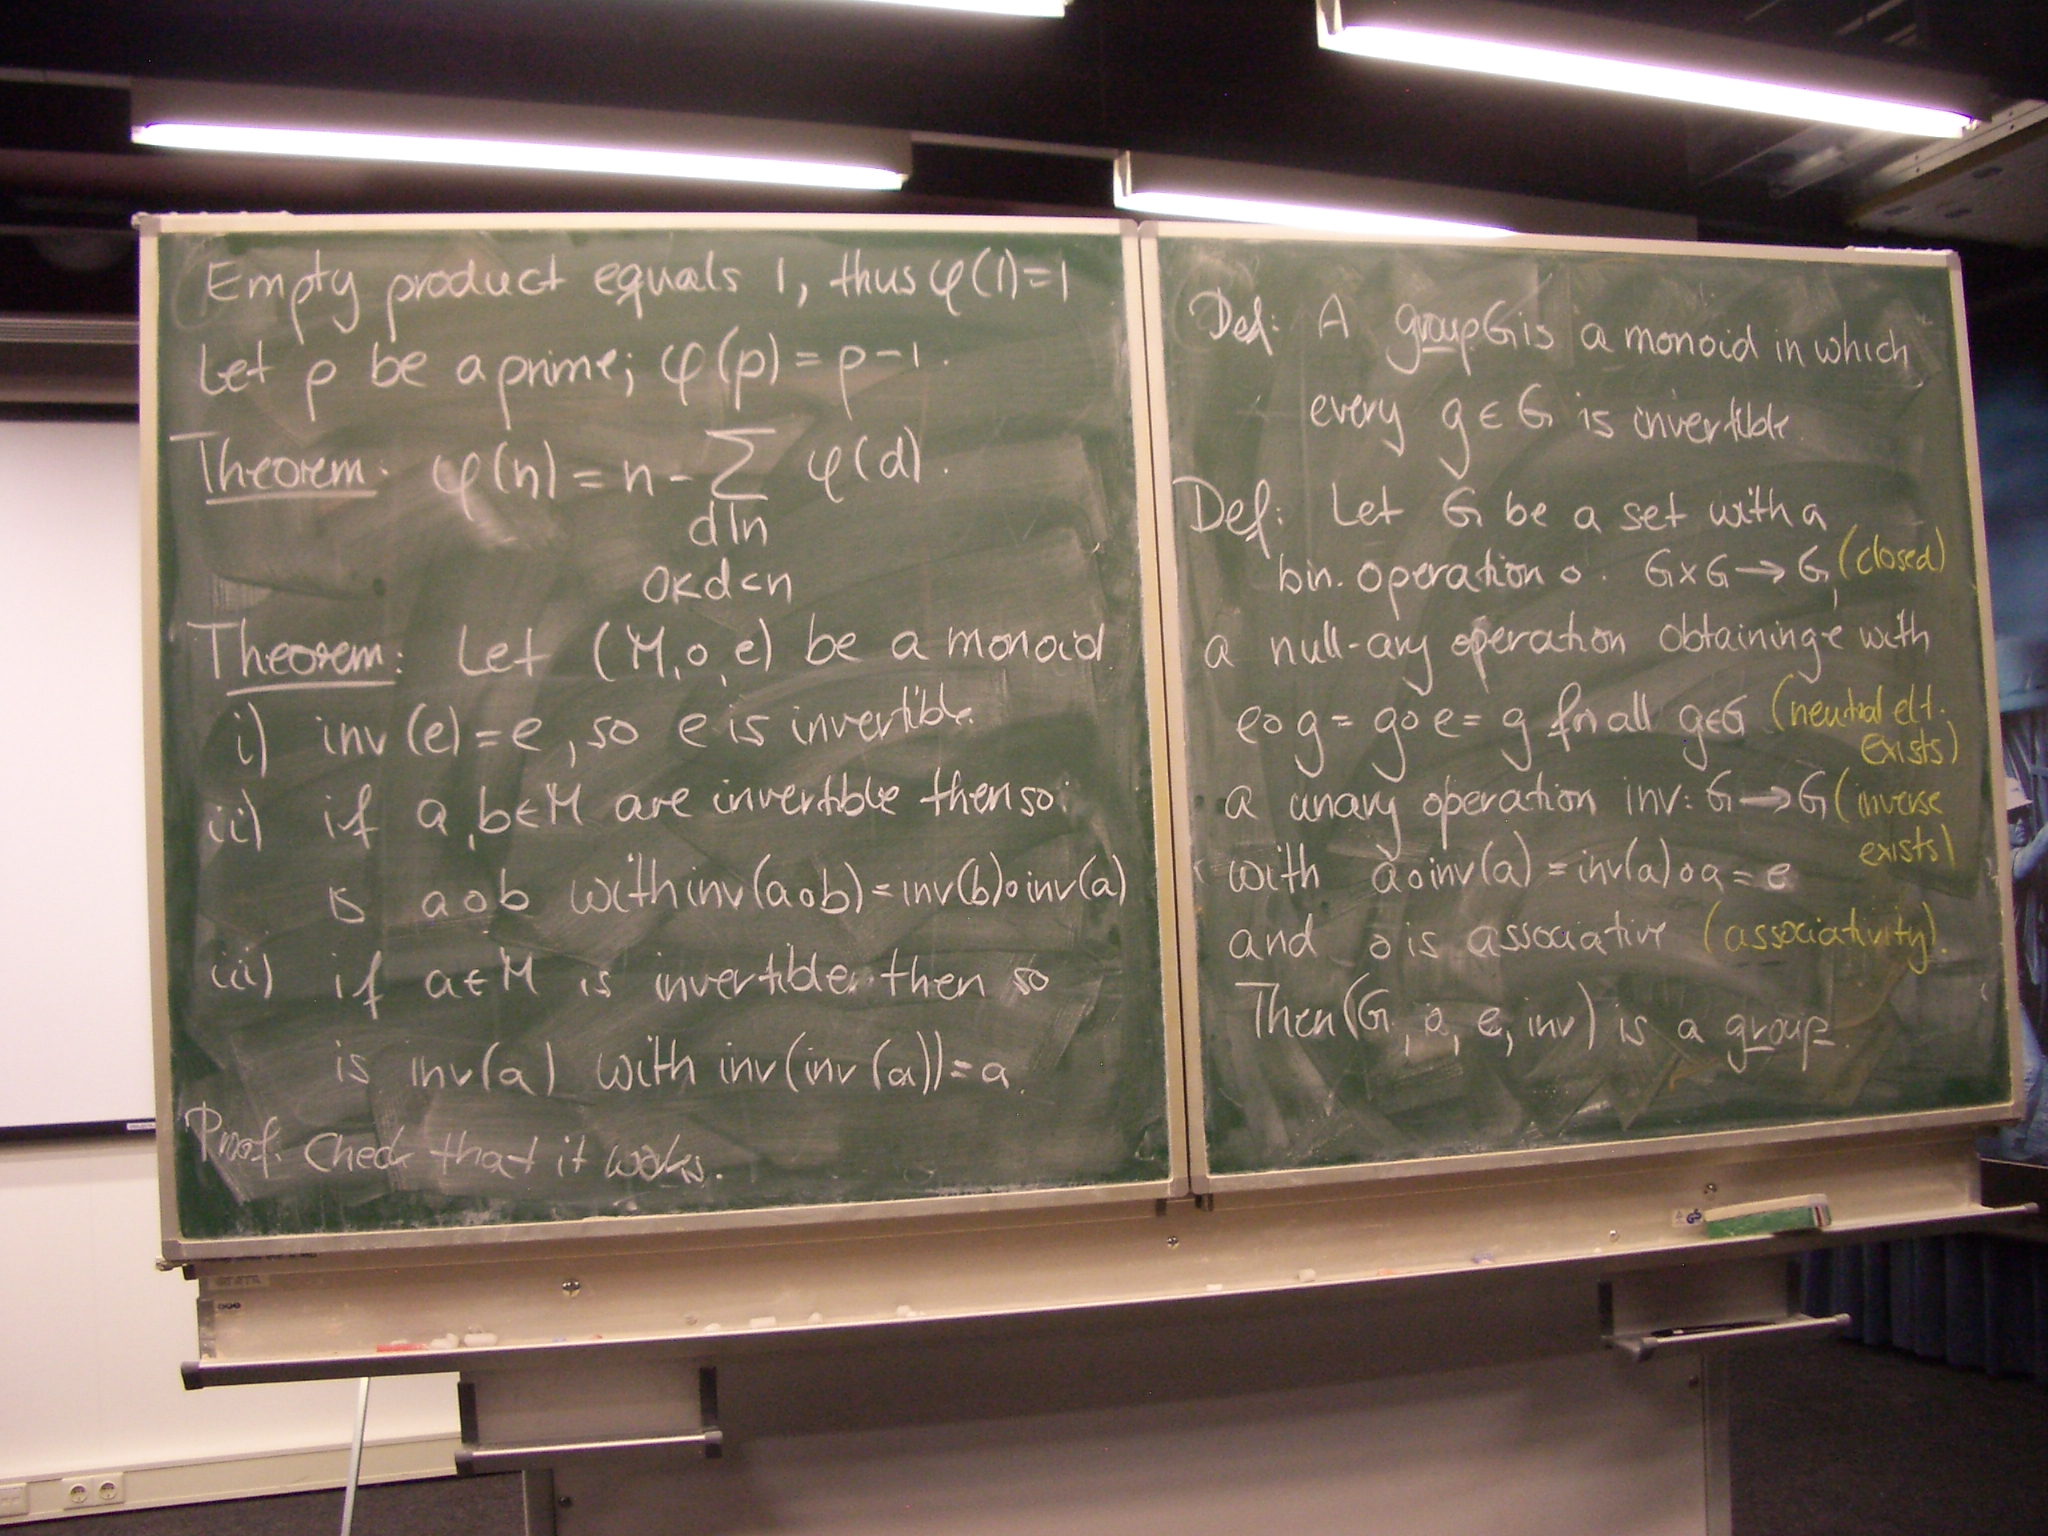 Empty product equals 1, thus φ(1)=1
Let p be a prime; φ(p) = p-1.
Theorem: φ(n) = n - Σ φ(d).
d|n
0<d<n
Theorem: Let (M,∘,e) be a monoid
i) inv(e)=e, so e is invertible.
ii) if a,b∈M are invertible then so
is a∘b with inv(a∘b)=inv(b)∘inv(a)
iii) if a∈M is invertible then so
is inv(a) with inv(inv(a))=a.
Proof. Check that it works.
Def: A group G is a monoid in which
every g∈G is invertible.
Def: Let G be a set with a
bin. operation ∘: G×G→G, (closed)
a null-ary operation obtaining e with
e∘g = g∘e = g for all g∈G (neutral elt.
exists)
a unary operation inv: G→G (inverse
exists)
with a∘inv(a) = inv(a)∘a = e
and ∘ is associative (associativity).
Then (G, ∘, e, inv) is a group.